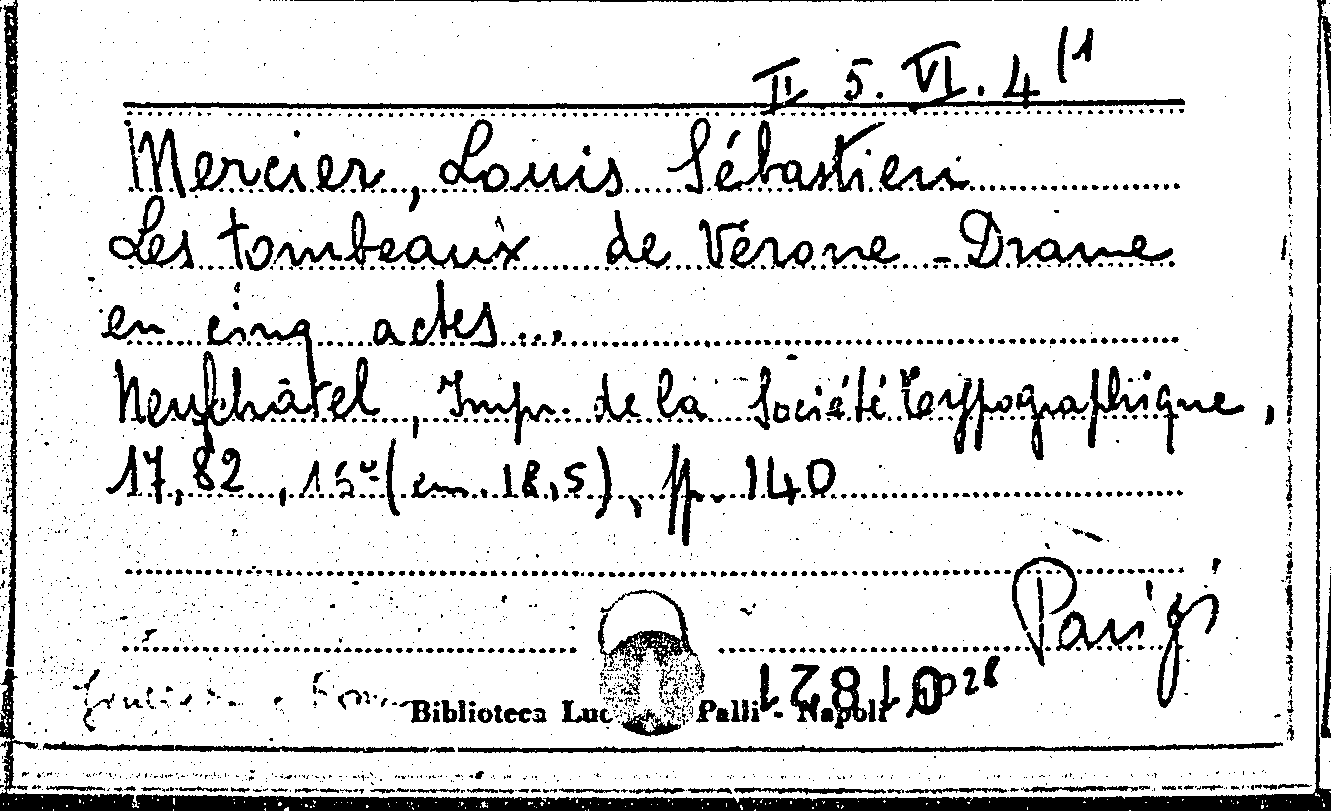 II 5. VI. 4 (1
Mercier, Louis Sébastien
Les tombeaux de Vérone - Drame
en cinq actes...
Neufchâtel, Imp. de la Société Typographique,
17,82, 16° (cm. 18,5), pp. 140
Parigi
Biblioteca Luc Palli - Napoli